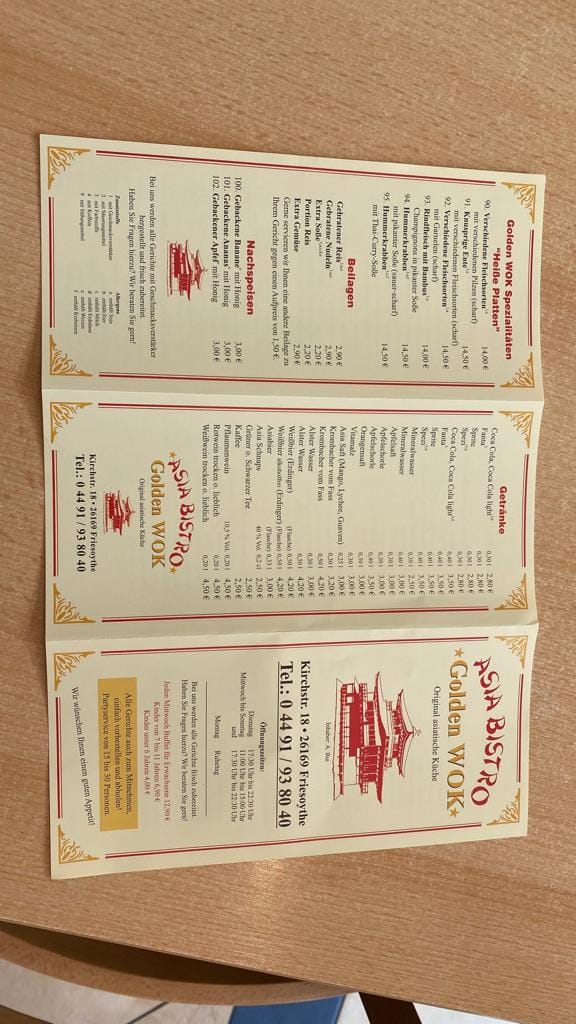 Golden WOK Spezialitäten
"Heiße Platten"
90. Verschiedene Fleischsorten 14,00 €
mit verschiedenen Pilzen (scharf)
91. Knusprige Ente 14,50 €
mit verschiedenen Fleischsorten (scharf)
92. Verschiedene Fleischsorten 14,50 €
mit Garnelen (scharf)
93. Rindfleisch mit Bambus 14,00 €
Champignons in pikanter Soße
94. Hummerkrabben 14,50 €
mit pikanter Soße (sauer-scharf)
95. Hummerkrabben 14,50 €
mit Thai-Curry-Soße
Beilagen
Gebratener Reis 2,90 €
Gebratene Nudeln 2,90 €
Extra Soße 2,20 €
Portion Reis 2,20 €
Extra Gemüse 2,90 €
Gerne servieren wir Ihnen eine andere Beilage zu
Ihrem Gericht gegen einen Aufpreis von 1,50 €.
Nachspeisen
100. Gebackene Banane mit Honig 3,00 €
101. Gebackene Ananas mit Honig 3,00 €
102. Gebackener Apfel mit Honig 3,00 €
Bei uns werden alle Gerichte mit Geschmacksverstärker
hergestellt und frisch zubereitet.
Haben Sie Fragen hierzu? Wir beraten Sie gern!
Zusatzstoffe
1 mit Geschmacksverstärker
2 mit Säuerungsmittel
3 mit Farbstoffe
4 mit Koffein
9 mit Süßungsmittel
Allergene
a enthält Soja
b enthält Eier
c enthält Milch
d enthält Erdnüsse
e enthält Weizen
f enthält Krebstiere
Getränke
Coca Cola, Coca Cola light 0,30 l 2,80 €
Fanta 0,30 l 2,80 €
Sprite 0,30 l 2,80 €
Spezi 0,30 l 2,80 €
Coca Cola, Coca Cola light 0,40 l 3,50 €
Fanta 0,40 l 3,50 €
Sprite 0,40 l 3,50 €
Spezi 0,40 l 3,50 €
Mineralwasser 0,30 l 2,50 €
Mineralwasser 0,40 l 3,00 €
Apfelsaft 0,30 l 3,00 €
Apfelschorle 0,30 l 3,00 €
Apfelschorle 0,40 l 3,50 €
Orangensaft 0,30 l 3,00 €
Vitamalz 0,30 l 3,00 €
Asia Saft (Mango, Lychee, Guaven) 0,25 l 3,00 €
Krombacher vom Fass 0,30 l 3,20 €
Krombacher vom Fass 0,50 l 4,20 €
Alster Wasser 0,30 l 3,00 €
Alster Wasser 0,50 l 4,20 €
Weißbier (Erdinger) (Flasche) 0,50 l 4,20 €
Weißbier alkoholfrei (Erdinger) (Flasche) 0,50 l 4,20 €
Asiabier (Flasche) 0,33 l 3,00 €
Asia Schnaps 40 % Vol. 0,2 cl 2,50 €
Grüner o. Schwarzer Tee 2,50 €
Kaffee 2,50 €
Pflaumenwein 10,5 % Vol. 0,20 l 4,50 €
Rotwein trocken o. lieblich 0,20 l 4,50 €
Weißwein trocken o. lieblich 0,20 l 4,50 €
ASIA BISTRO
Golden WOK
Original asiatische Küche
Kirchstr. 18 • 26169 Friesoythe
Tel.: 0 44 91 / 93 80 40
ASIA BISTRO
Golden WOK
Original asiatische Küche
Inhaber: A. Bui
Kirchstr. 18 • 26169 Friesoythe
Tel.: 0 44 91 / 93 80 40
Öffnungszeiten:
Dienstag 17:30 Uhr bis 22:30 Uhr
Mittwoch bis Sonntag 11:00 Uhr bis 15:00 Uhr
und 17:30 Uhr bis 22:30 Uhr
Montag Ruhetag
Bei uns werden alle Gerichte frisch zubereitet.
Haben Sie Fragen hierzu? Wir beraten Sie gern!
Jeden Mittwoch Buffet für Erwachsene 12,90 €
Kinder von 7 bis 11 Jahren 6,90 €
Kinder unter 6 Jahren 4,00 €
Alle Gerichte auch zum Mitnehmen,
einfach vorbestellen und abholen!
Partyservice von 15 bis 30 Personen.
Wir wünschen Ihnen einen guten Appetit!